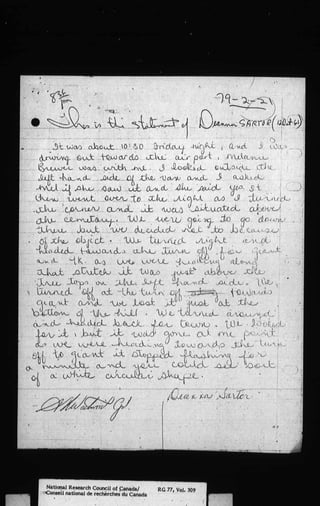 79-2-21
This is the statement of Deanna SARTOR
It was about 10:30 Friday night, and I was
driving out towards the airport. Melanie
Brewer was with me. I looked outside the
left hand side of the van and I asked
Mel if she saw it and she said yes. It
then went over to the right as I turned
the corner and it was situated above
the cemetary. We were going to go down
there but we decided not to because
of the object. We turned right and
headed towards the turn off for Giant
and as we were heading along
that stretch it was just above the
tree tops on the left hand side. We
turned off at the turn off towards
Giant and we lost it just at the
bottom of the hill. We turned around
and headed back for town. We looked
for it, but it was gone at one point
as we were heading towards the turn
off to giant it stopped flashing for
a minute and you could see sort
of a white circular shape.
Deanna Sartor
National Research Council of Canada/
Conseil national de recherches du Canada
RG 77, Vol. 309